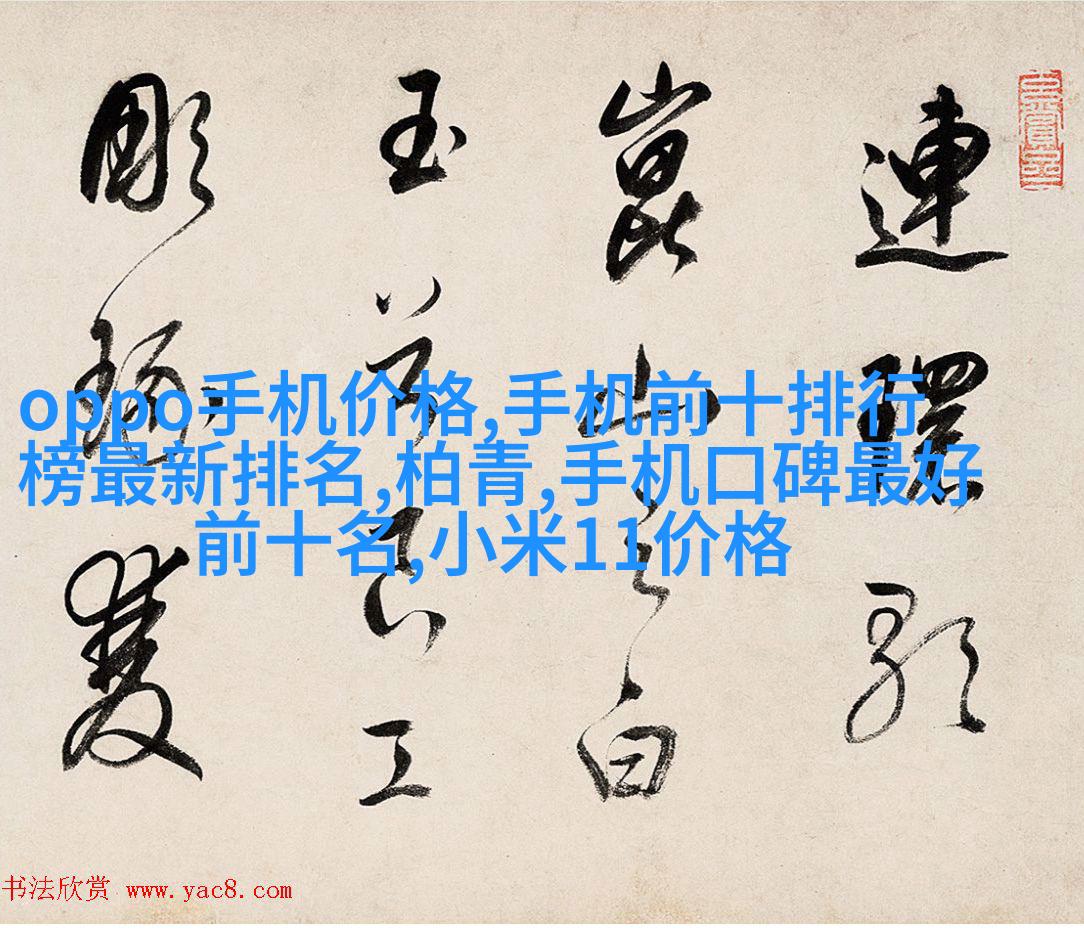 連環歌
崑山之白
玉兮良工
彫琢雙
oppo手机价格,手机前十排行
榜最新排名,柏青,手机口碑最好
前十名,小米11价格
书法欣赏 www.yac8.com